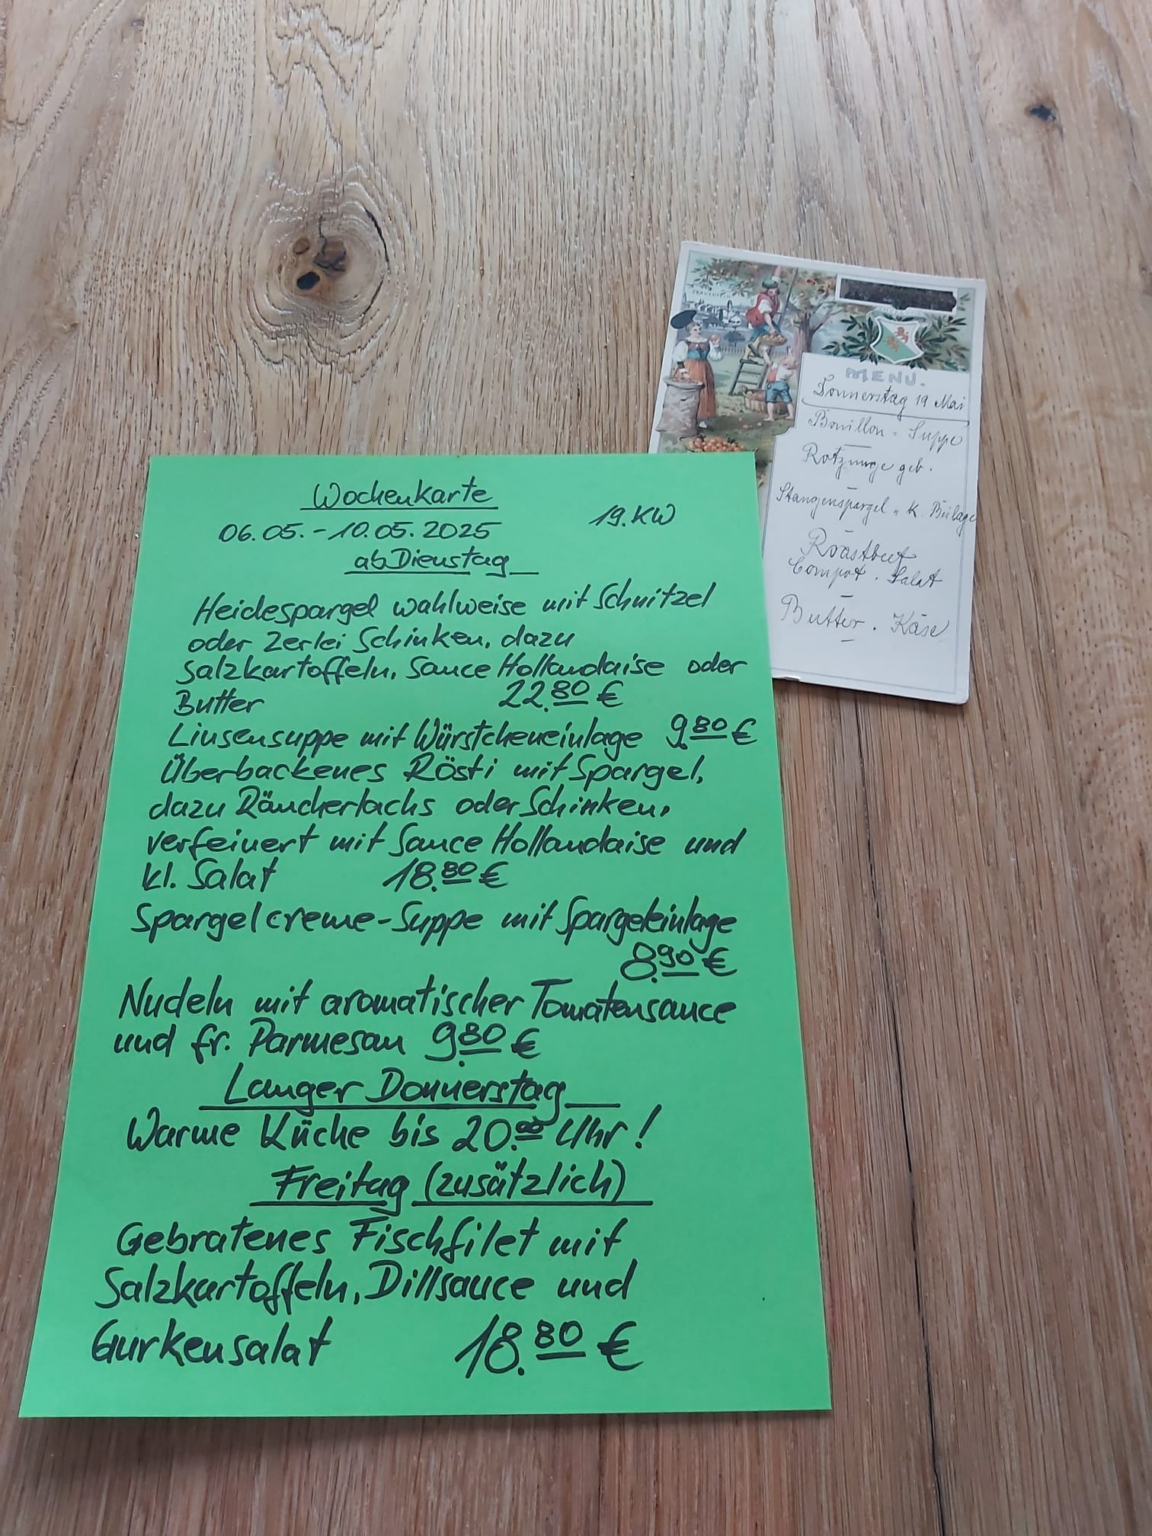 Wochenkarte
06.05.-10.05.2025 19.KW
ab Dienstag
Heidespargel wahlweise mit Schnitzel
oder 2erlei Schinken, dazu
Salzkartoffeln, Sauce Hollandaise oder
Butter 22.80 €
Linsensuppe mit Würstcheneinlage 9.80 €
Überbackenes Rösti mit Spargel,
dazu Räucherlachs oder Schinken,
verfeinert mit Sauce Hollandaise und
kl. Salat 18.80 €
Spargelcreme-Suppe mit Spargeleinlage
8.90 €
Nudeln mit aromatischer Tomatensauce
und fr. Parmesan 9.80 €
Langer Donnerstag
Warme Küche bis 20.00 Uhr!
Freitag (zusätzlich)
Gebratenes Fischfilet mit
Salzkartoffeln, Dillsauce und
Gurkensalat 18.80 €
MENU.
Donnerstag 19 Mai
Bouillon - Suppe
Rotzunge geb.
Stangenspargel u. K. Beilage
Roastbeef
Compot. Salat
Butter. Käse